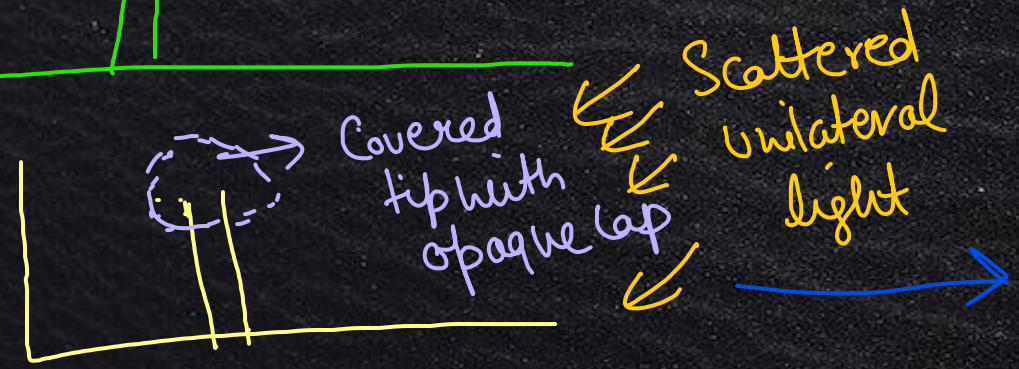 Covered
tip with
opaque cap
Scattered
unilateral
light